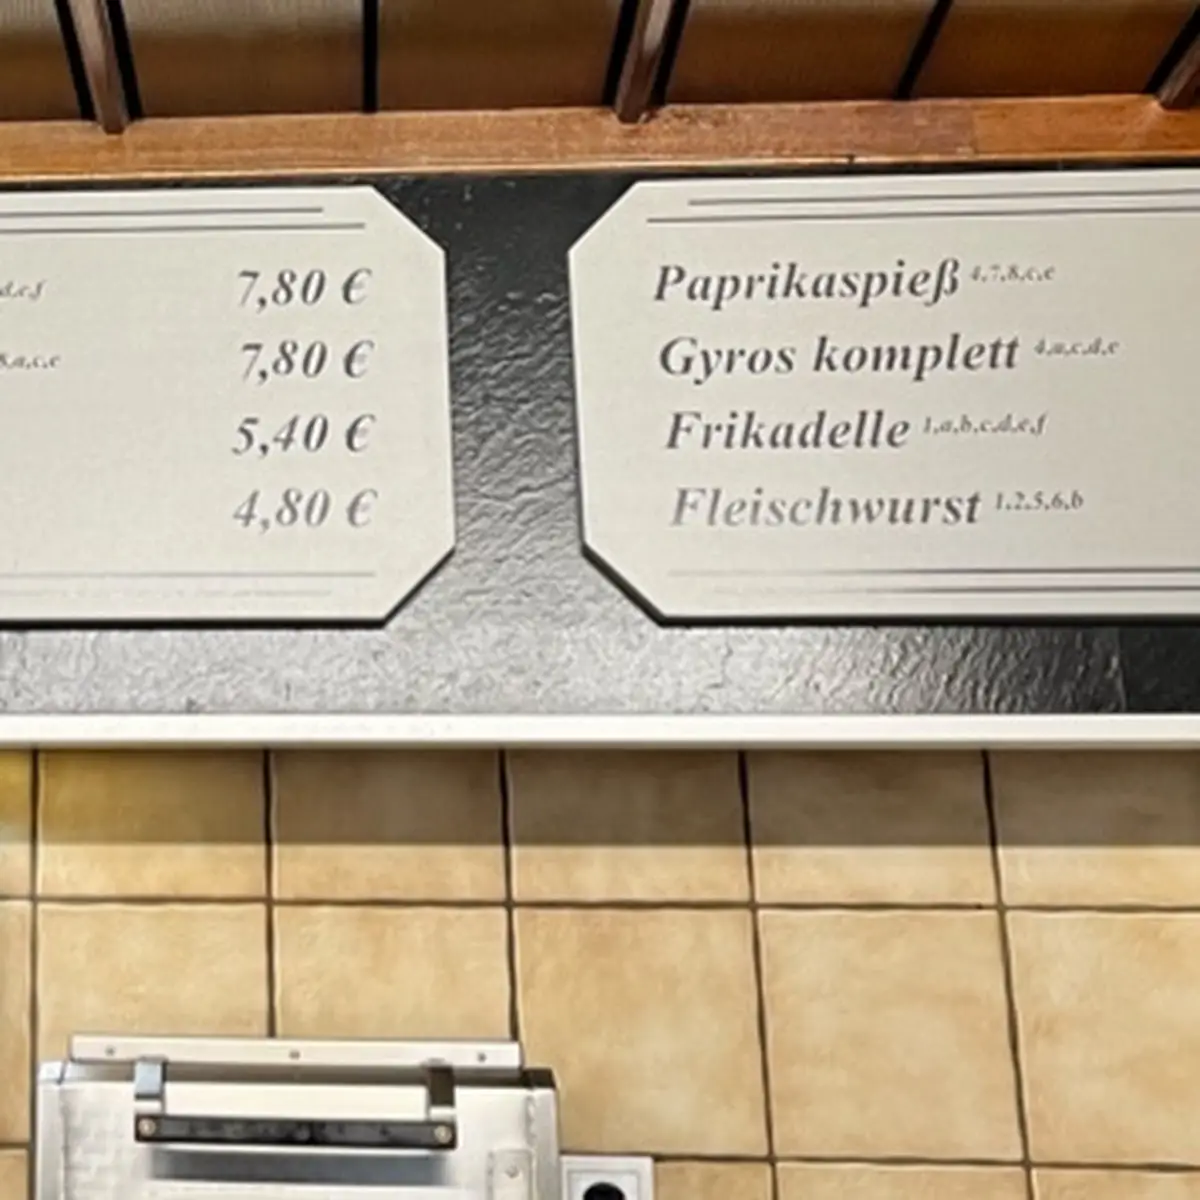 d,e,f 7,80 €
8,a,c,e 7,80 €
5,40 €
4,80 €
Paprikaspieß 4,7,8,c,e
Gyros komplett 4,a,c,d,e
Frikadelle 1,a,b,c,d,e,f
Fleischwurst 1,2,5,6,b